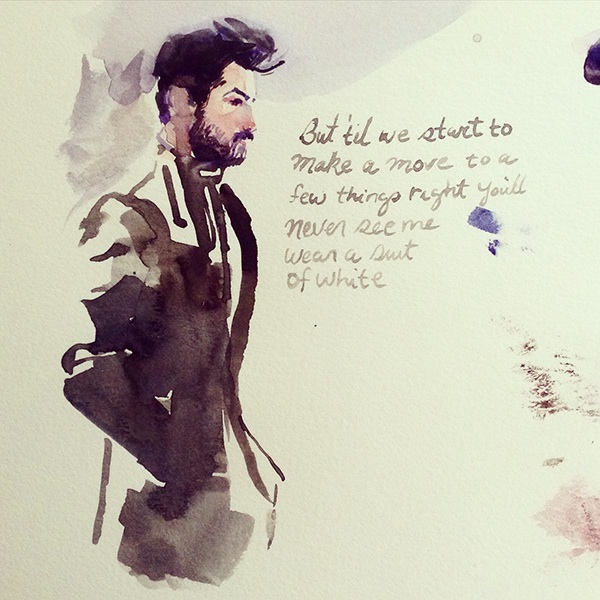 But 'til we start to
make a move to a
few things right you'll
never see me
wear a suit
of white